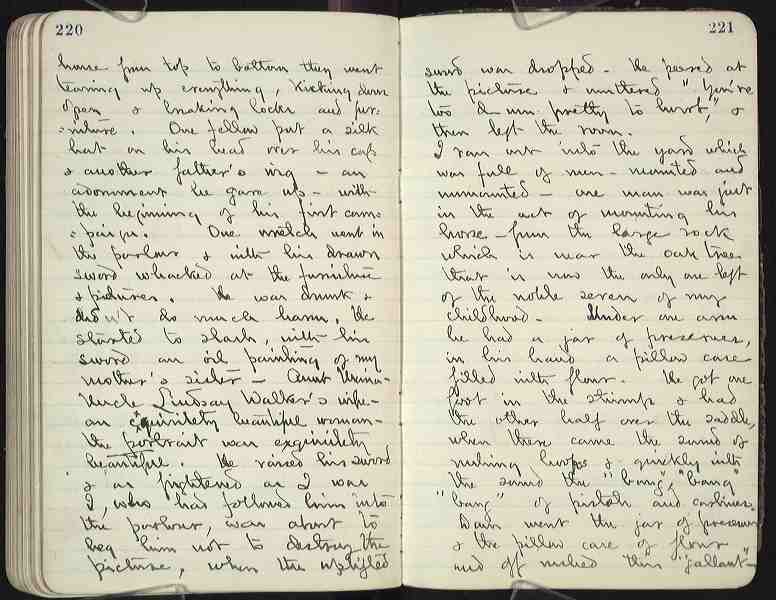 220
house from top to bottom they went
tearing up everything, kicking down
open & breaking locks and fur:
:niture. One fellow put a silk
hat on his head over his cap
& another father's wig – an
adornment he gave up – with
the beginning of his first cam:
:paign. One wretch went in
the parlour & with his drawn
sword whacked at the furniture
& pictures. He was drunk &
didn't do much harm. He
started to slash, with his
sword an oil painting of my
mother's sister – Aunt
Uncle Lindsay Walker's wife –
an exquisitely beautiful woman –
the portrait was exquisitely
beautiful. He raised his sword
& as frightened as I was
I, who had followed him into
the parlour, was about to
beg him not to destroy the
picture, when the uplifted
221
sword was dropped – He peered at
the picture & muttered "You're
too d–mn pretty to hurt," &
then left the room.
I ran out into the yard which
was full of men – mounted and
unmounted – one man was just
in the act of mounting his
horse – from the large rock
which is near the oak tree
that is now the only one left
of the noble seven of my
childhood – Under one arm
he had a jar of preserves,
in his hand a pillow case
filled with flour. He got one
foot in the stirrup & had
the other half over the saddle,
when there came the sound of
rushing hoofs & quickly with
the sound the "bang", "bang"
"bang" of pistols and carbines.
Down went the jar of preserves
& the pillow case of flour
and off rushed this "gallant" –